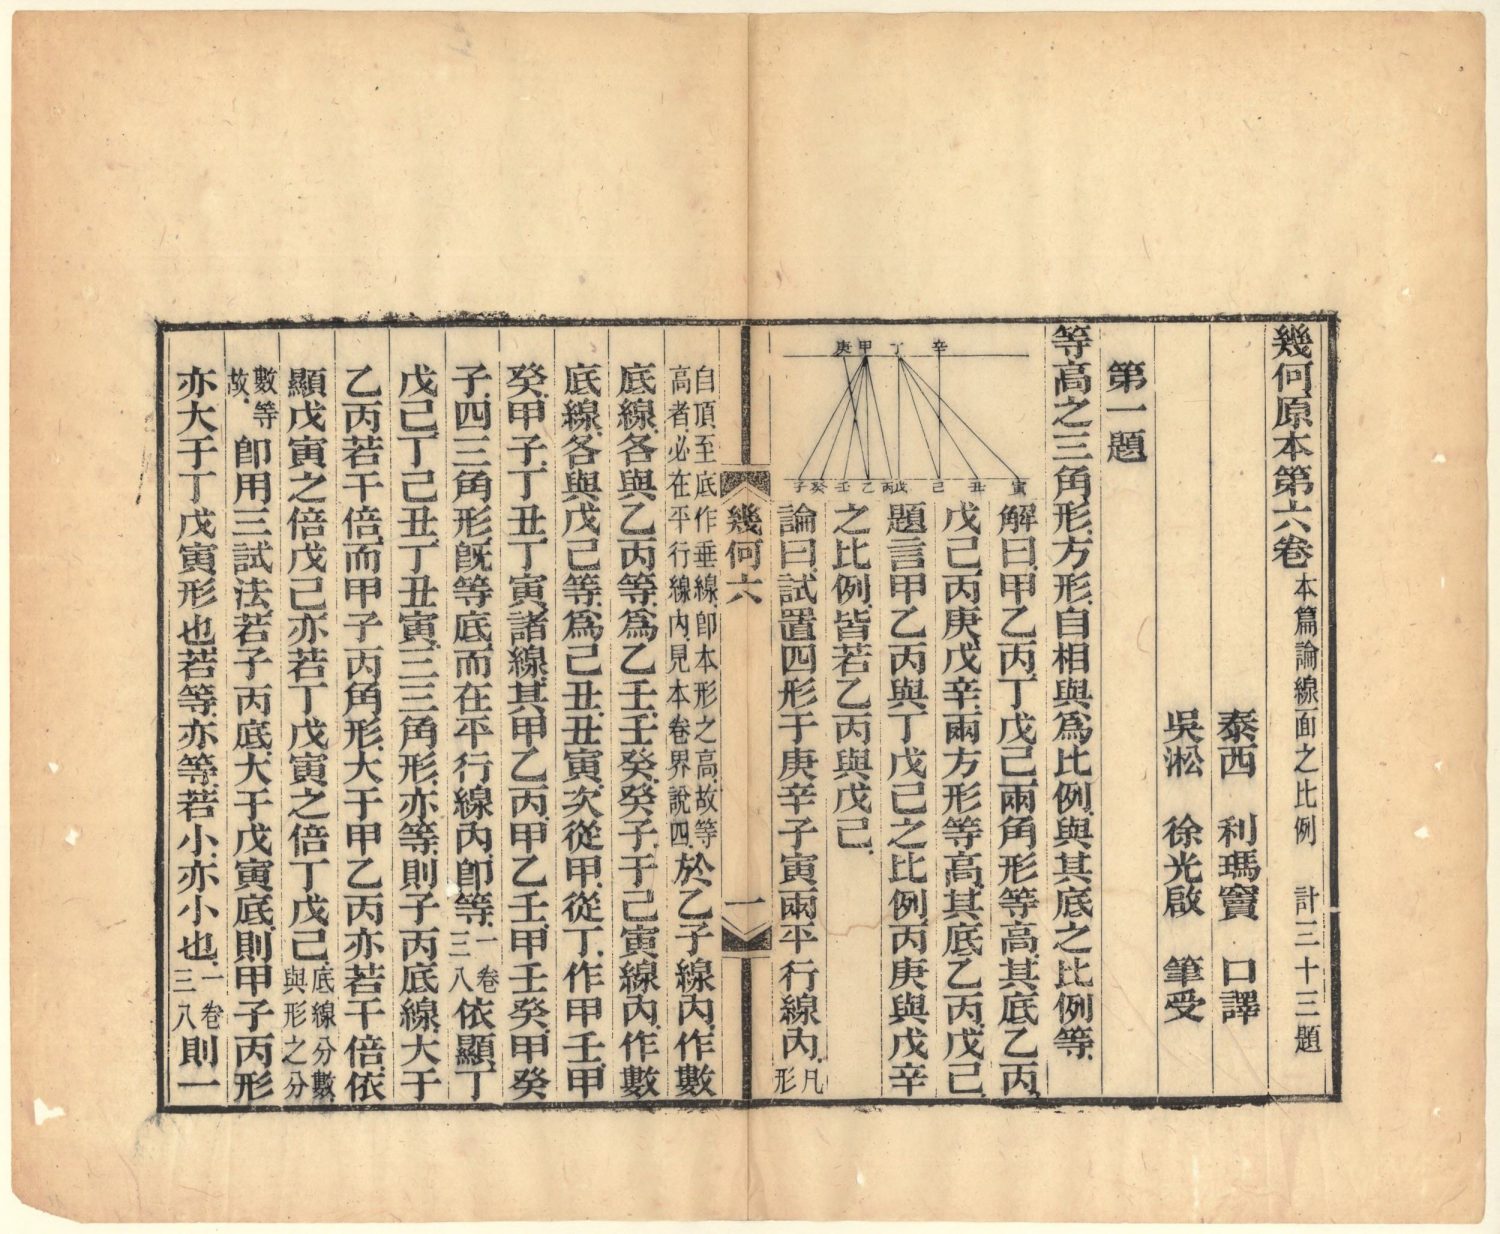 幾何原本第六卷本篇論線面之比例 計三十三題
泰西 利瑪竇 口譯
吳淞 徐光啟 筆受
第一題
等高之三角形方形自相與爲比例與其底之比例等
辛 丁 甲 庚
寅 丑 己 戊 丙 乙 壬 癸 子
解曰甲乙丙丁戊己兩角形等高其底乙丙
戊己丙庚戊辛兩方形等高其底乙丙戊己
題言甲乙丙與丁戊己之比例丙庚與戊辛
之比例皆若乙丙與戊己
論曰試置四形于庚辛子寅兩平行線內凡形
幾何六
一
自頂至底作垂線卽本形之高故等高者必在平行線內見本卷界說四於乙子線內作數
底線各與乙丙等爲乙壬壬癸癸子于己寅線內作數
底線各與戊己等爲己丑丑寅次從甲從丁作甲壬甲
癸甲子丁丑丁寅諸線其甲乙丙甲乙壬甲壬癸甲癸
子四三角形旣等底而在平行線內卽等一卷三八依顯丁
戊己丁己丑丁丑寅三三角形亦等則子丙底線大于
乙丙若干倍而甲子丙角形大于甲乙丙亦若干倍依
顯戊寅之倍戊己亦若丁戊寅之倍丁戊己底線分數與形之分
數等故卽用三試法若子丙底大于戊寅底則甲子丙形
亦大于丁戊寅形也若等亦等若小亦小也一卷三八則一